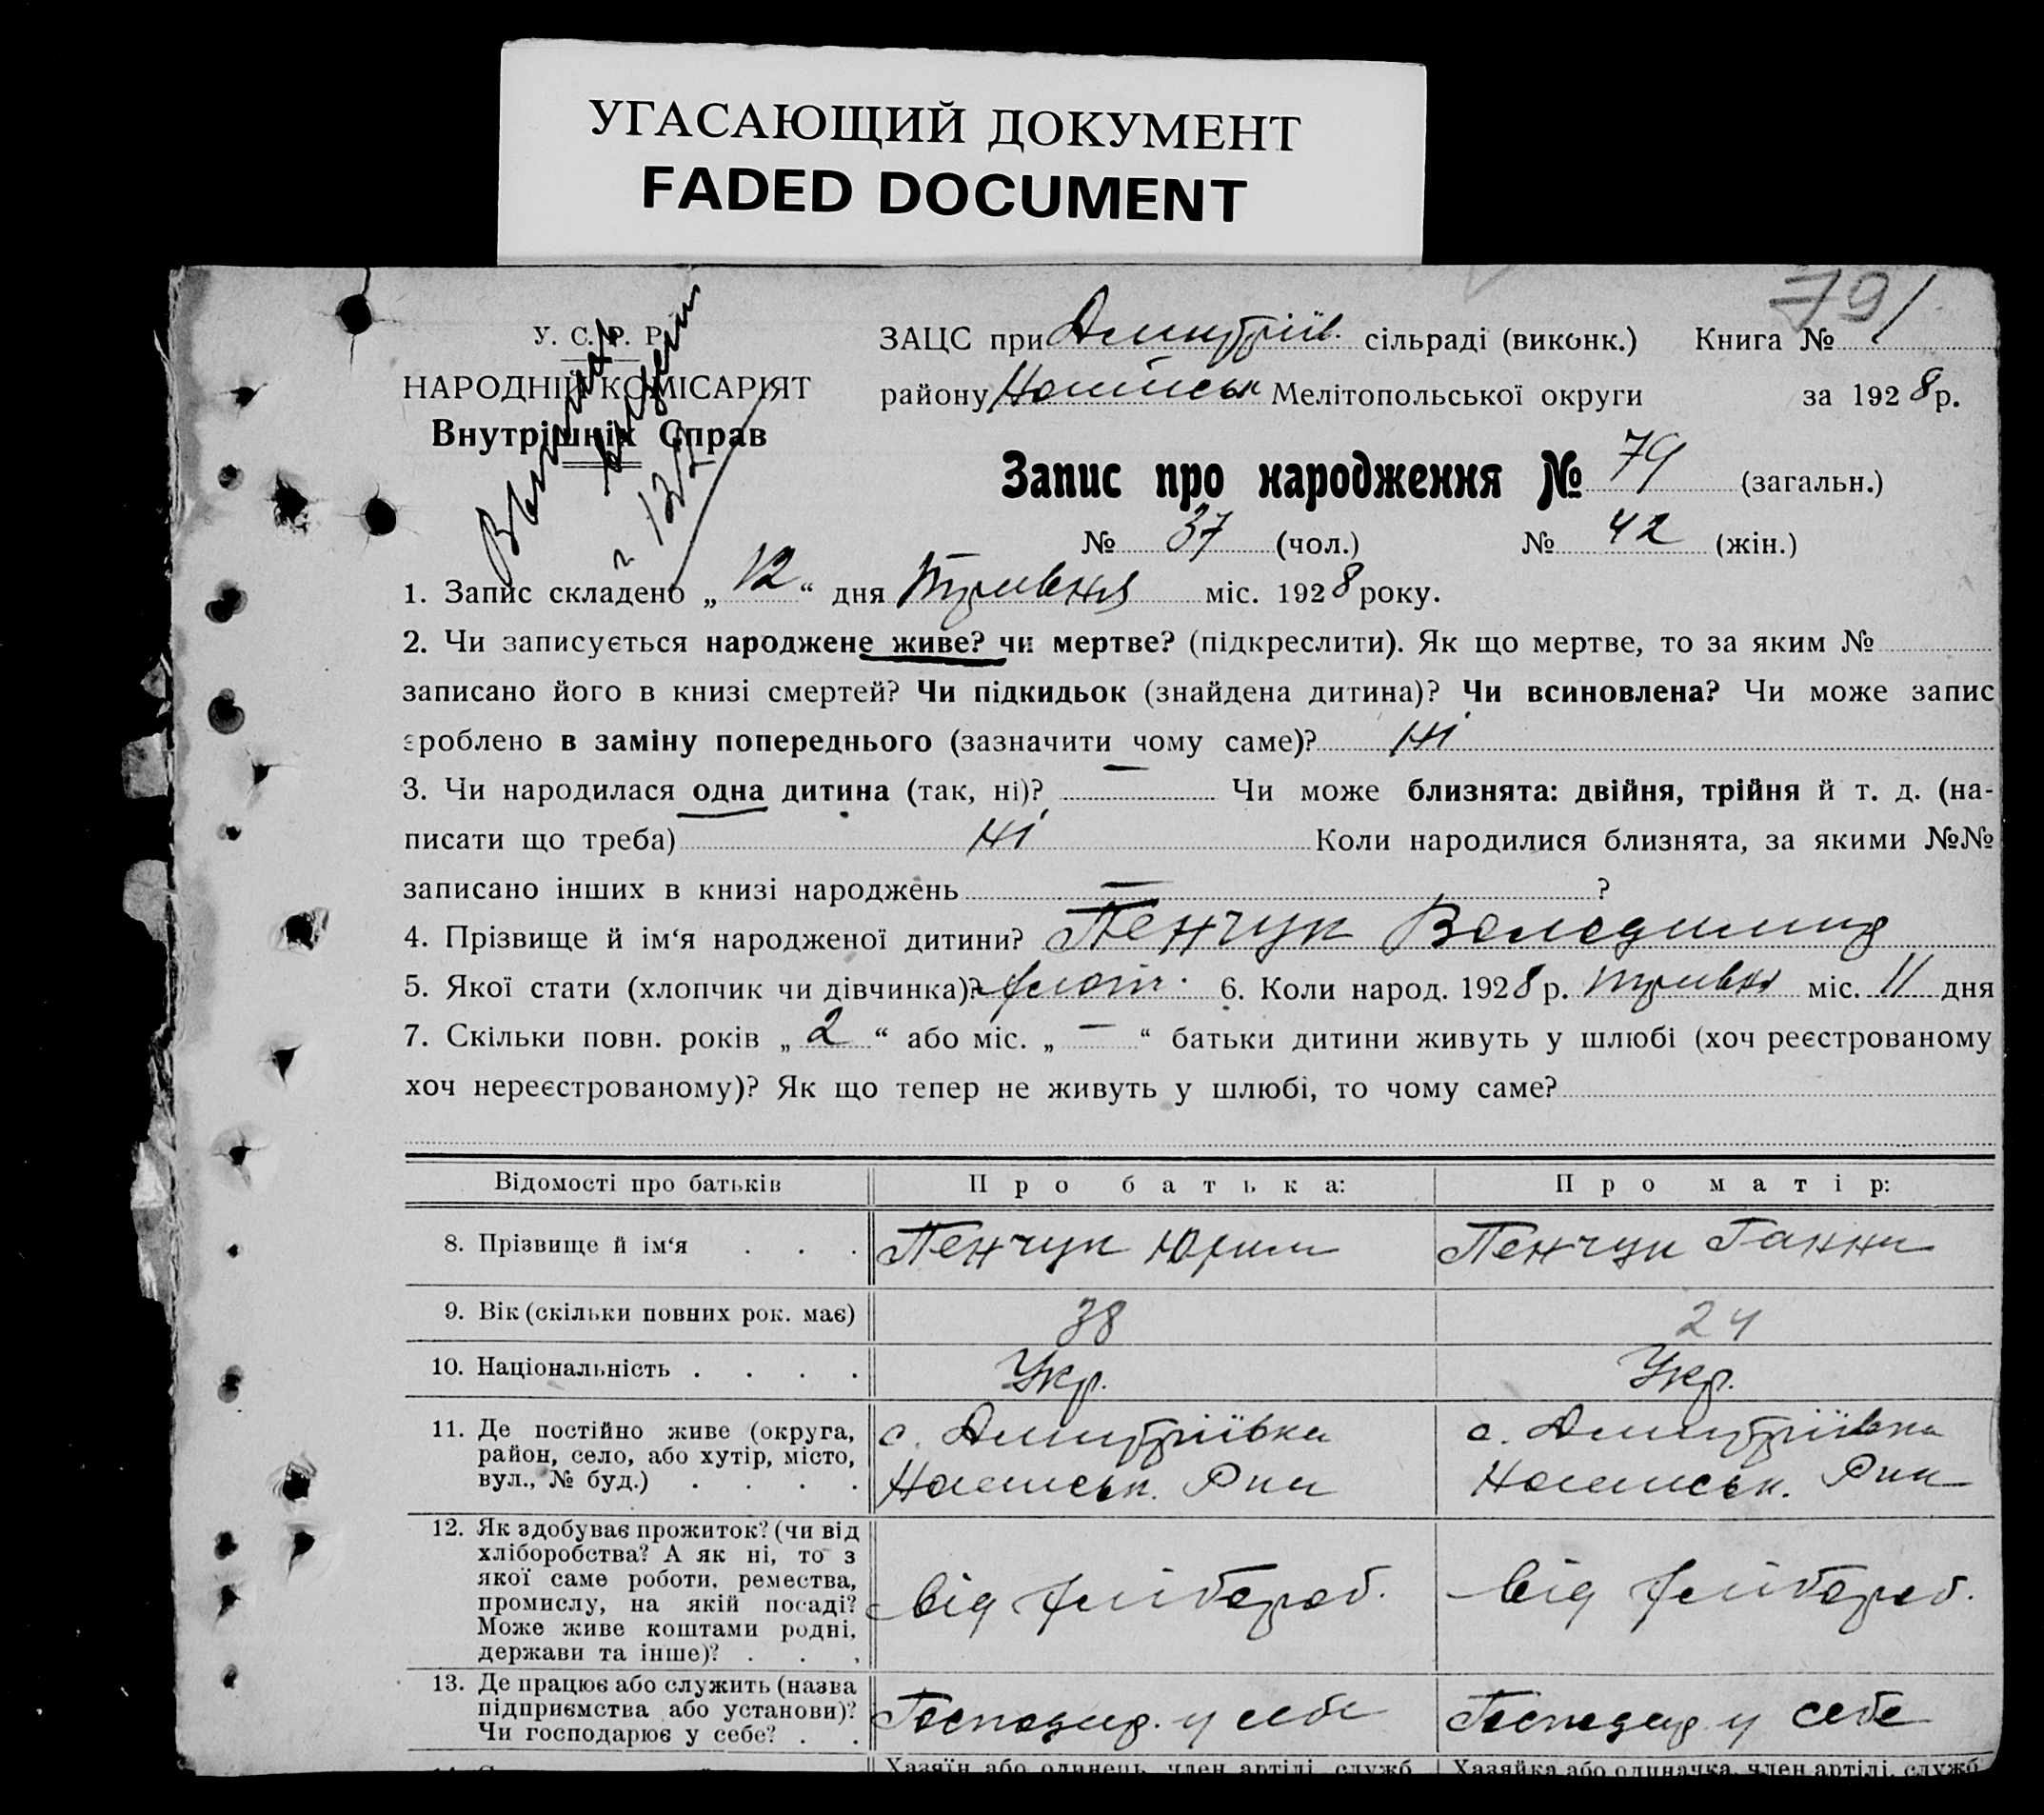 УГАСАЮЩИЙ ДОКУМЕНТ
FADED DOCUMENT
791
У. С. Р. Р.
НАРОДНІЙ КОМІСАРІЯТ
Внутрішніх Справ
ЗАЦС при Дмитріїв. сільраді (виконк.) Книга №
району Мелітопольської округи за 1928 р.
Запис про народження № 79 (загальн.)
№ 37 (чол.) № 42 (жін.)
1. Запис складено „ 12 “ дня травня міс. 1928 року.
2. Чи записується народжене живе? чи мертве? (підкреслити). Як що мертве, то за яким №
записано його в книзі смертей? Чи підкидьок (знайдена дитина)? Чи всиновлена? Чи може запис
зроблено в заміну попереднього (зазначити чому саме)? Ні
3. Чи народилася одна дитина (так, ні)? — Чи може близнята: двійня, трійня й т. д. (на-
писати що треба) Ні Коли народилися близнята, за якими №№
записано інших в книзі народжень — ?
4. Прізвище й ім‘я народженої дитини? Пенчук Володимир
5. Якої стати (хлопчик чи дівчинка)? хлоп. 6. Коли народ. 1928 р. травня міс. 11 дня
7. Скільки повн. років „ 2 “ або міс. „ — “ батьки дитини живуть у шлюбі (хоч реєстрованому
хоч нереєстрованому)? Як що тепер не живуть у шлюбі, то чому саме?
Відомості про батьків Про батька: Про матір:
8. Прізвище й ім‘я . . . Пенчук Юрим Пенчук Ганна
9. Вік (скільки повних рок. має) 38 24
10. Національність . . . . Укр. Укр.
11. Де постійно живе (округа, с. Дмитріївка с. Дмитріївка
район, село, або хутір, місто,
вул., № буд.) . . . .
12. Як здобуває прожиток? (чи від
хліборобства? А як ні, то з
якої саме роботи, ремества,
промислу, на якій посаді? від хлібороб. від хлібороб.
Може живе коштами родні,
держави та інше)? . . .
13. Де працює або служить (назва
підприємства або установи)? Господар. у себе Господар. у себе
Чи господарює у себе? . .
Хазяїн або одинець, член артілі, служб. Хазяйка або одиначка, член артілі, служб.